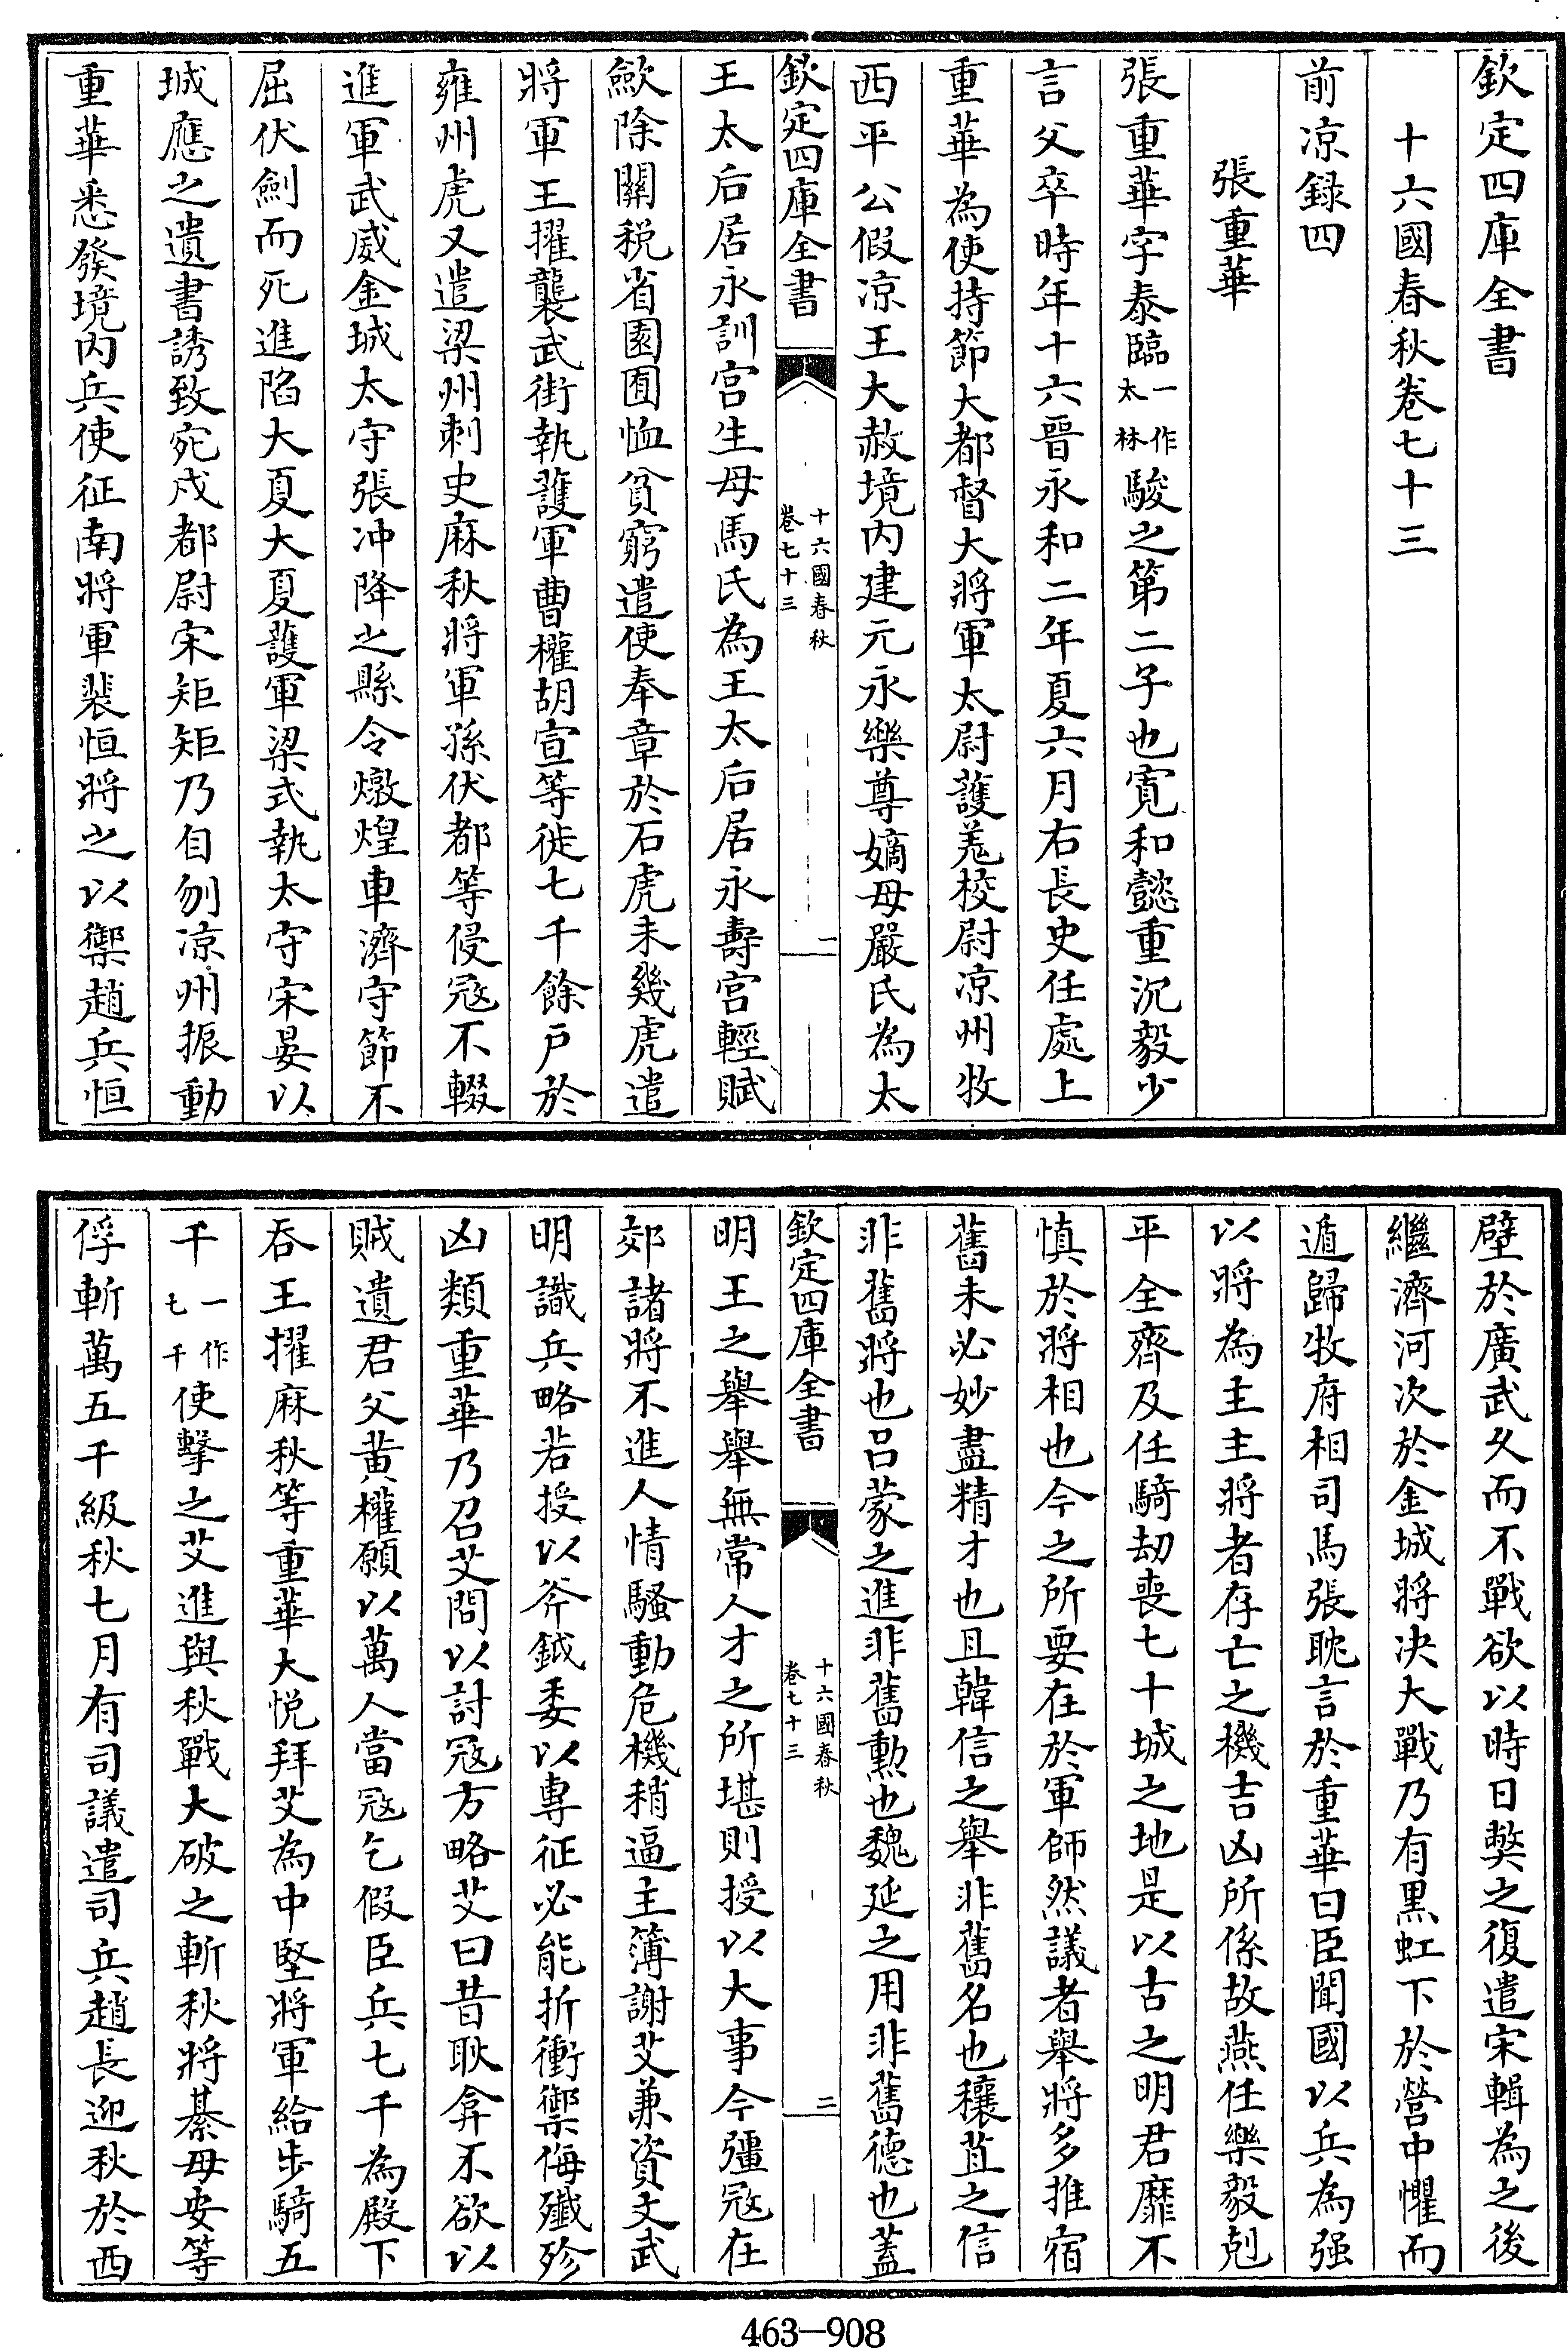 欽定四庫全書
十六國春秋卷七十三
前凉録四
張重華
張重華字泰臨一作太林駿之第二子也寛和懿重沉毅少
言父卒時年十六晉永和二年夏六月右長史任處上
重華為使持節大都督大將軍太尉護羗校尉凉州牧
西平公假凉王大赦境内建元永樂尊嫡母嚴氏為太
欽定四庫全書
十六國春秋
卷七十三
二
王太后居永訓宫生母馬氏為王太后居永壽宫輕賦
歛除關税省園囿恤貧窮遣使奉章於石虎未幾虎遣
將軍王擢襲武街執護軍曹權胡宣等徙七千餘戸於
雍州虎又遣梁州刺史麻秋將軍孫伏都等侵冦不輟
進軍武威金城太守張冲降之縣令燉煌車濟守節不
屈伏劍而死進陷大夏大夏護軍梁式執太守宋晏以
城應之遺書誘致宛戍都尉宋矩矩乃自刎凉州振動
重華悉發境内兵使征南將軍裴恒將之以禦趙兵恒
壁於廣武乆而不戰欲以時日獘之復遣宋輯為之後
繼濟河次於金城將决大戰乃有黒虹下於營中懼而
遁歸牧府相司馬張眈言於重華曰臣聞國以兵為强
以將為主主將者存亡之機吉凶所係故燕任樂毅剋
平全齊及任騎刼喪七十城之地是以古之明君靡不
慎於將相也今之所要在於軍師然議者舉將多推宿
舊未必妙盡精才也且韓信之舉非舊名也穰苴之信
非舊將也吕蒙之進非舊勲也魏延之用非舊德也葢
欽定四庫全書
十六國春秋
卷七十三
三
明王之舉舉無常人才之所堪則授以大事今彊冦在
郊諸將不進人情騷動危機稍逼主簿謝艾兼資文武
明識兵略若授以斧鉞委以專征必能折衝禦侮殱殄
凶類重華乃召艾問以討冦方略艾曰昔耿弇不欲以
賊遺君父黄權願以萬人當冦乞假臣兵七千為殿下
吞王擢麻秋等重華大悦拜艾為中堅將軍給步騎五
千一作七千使擊之艾進與秋戰大破之斬秋將綦毋安等
俘斬萬五千級秋七月有司議遣司兵趙長迎秋於西
463-908